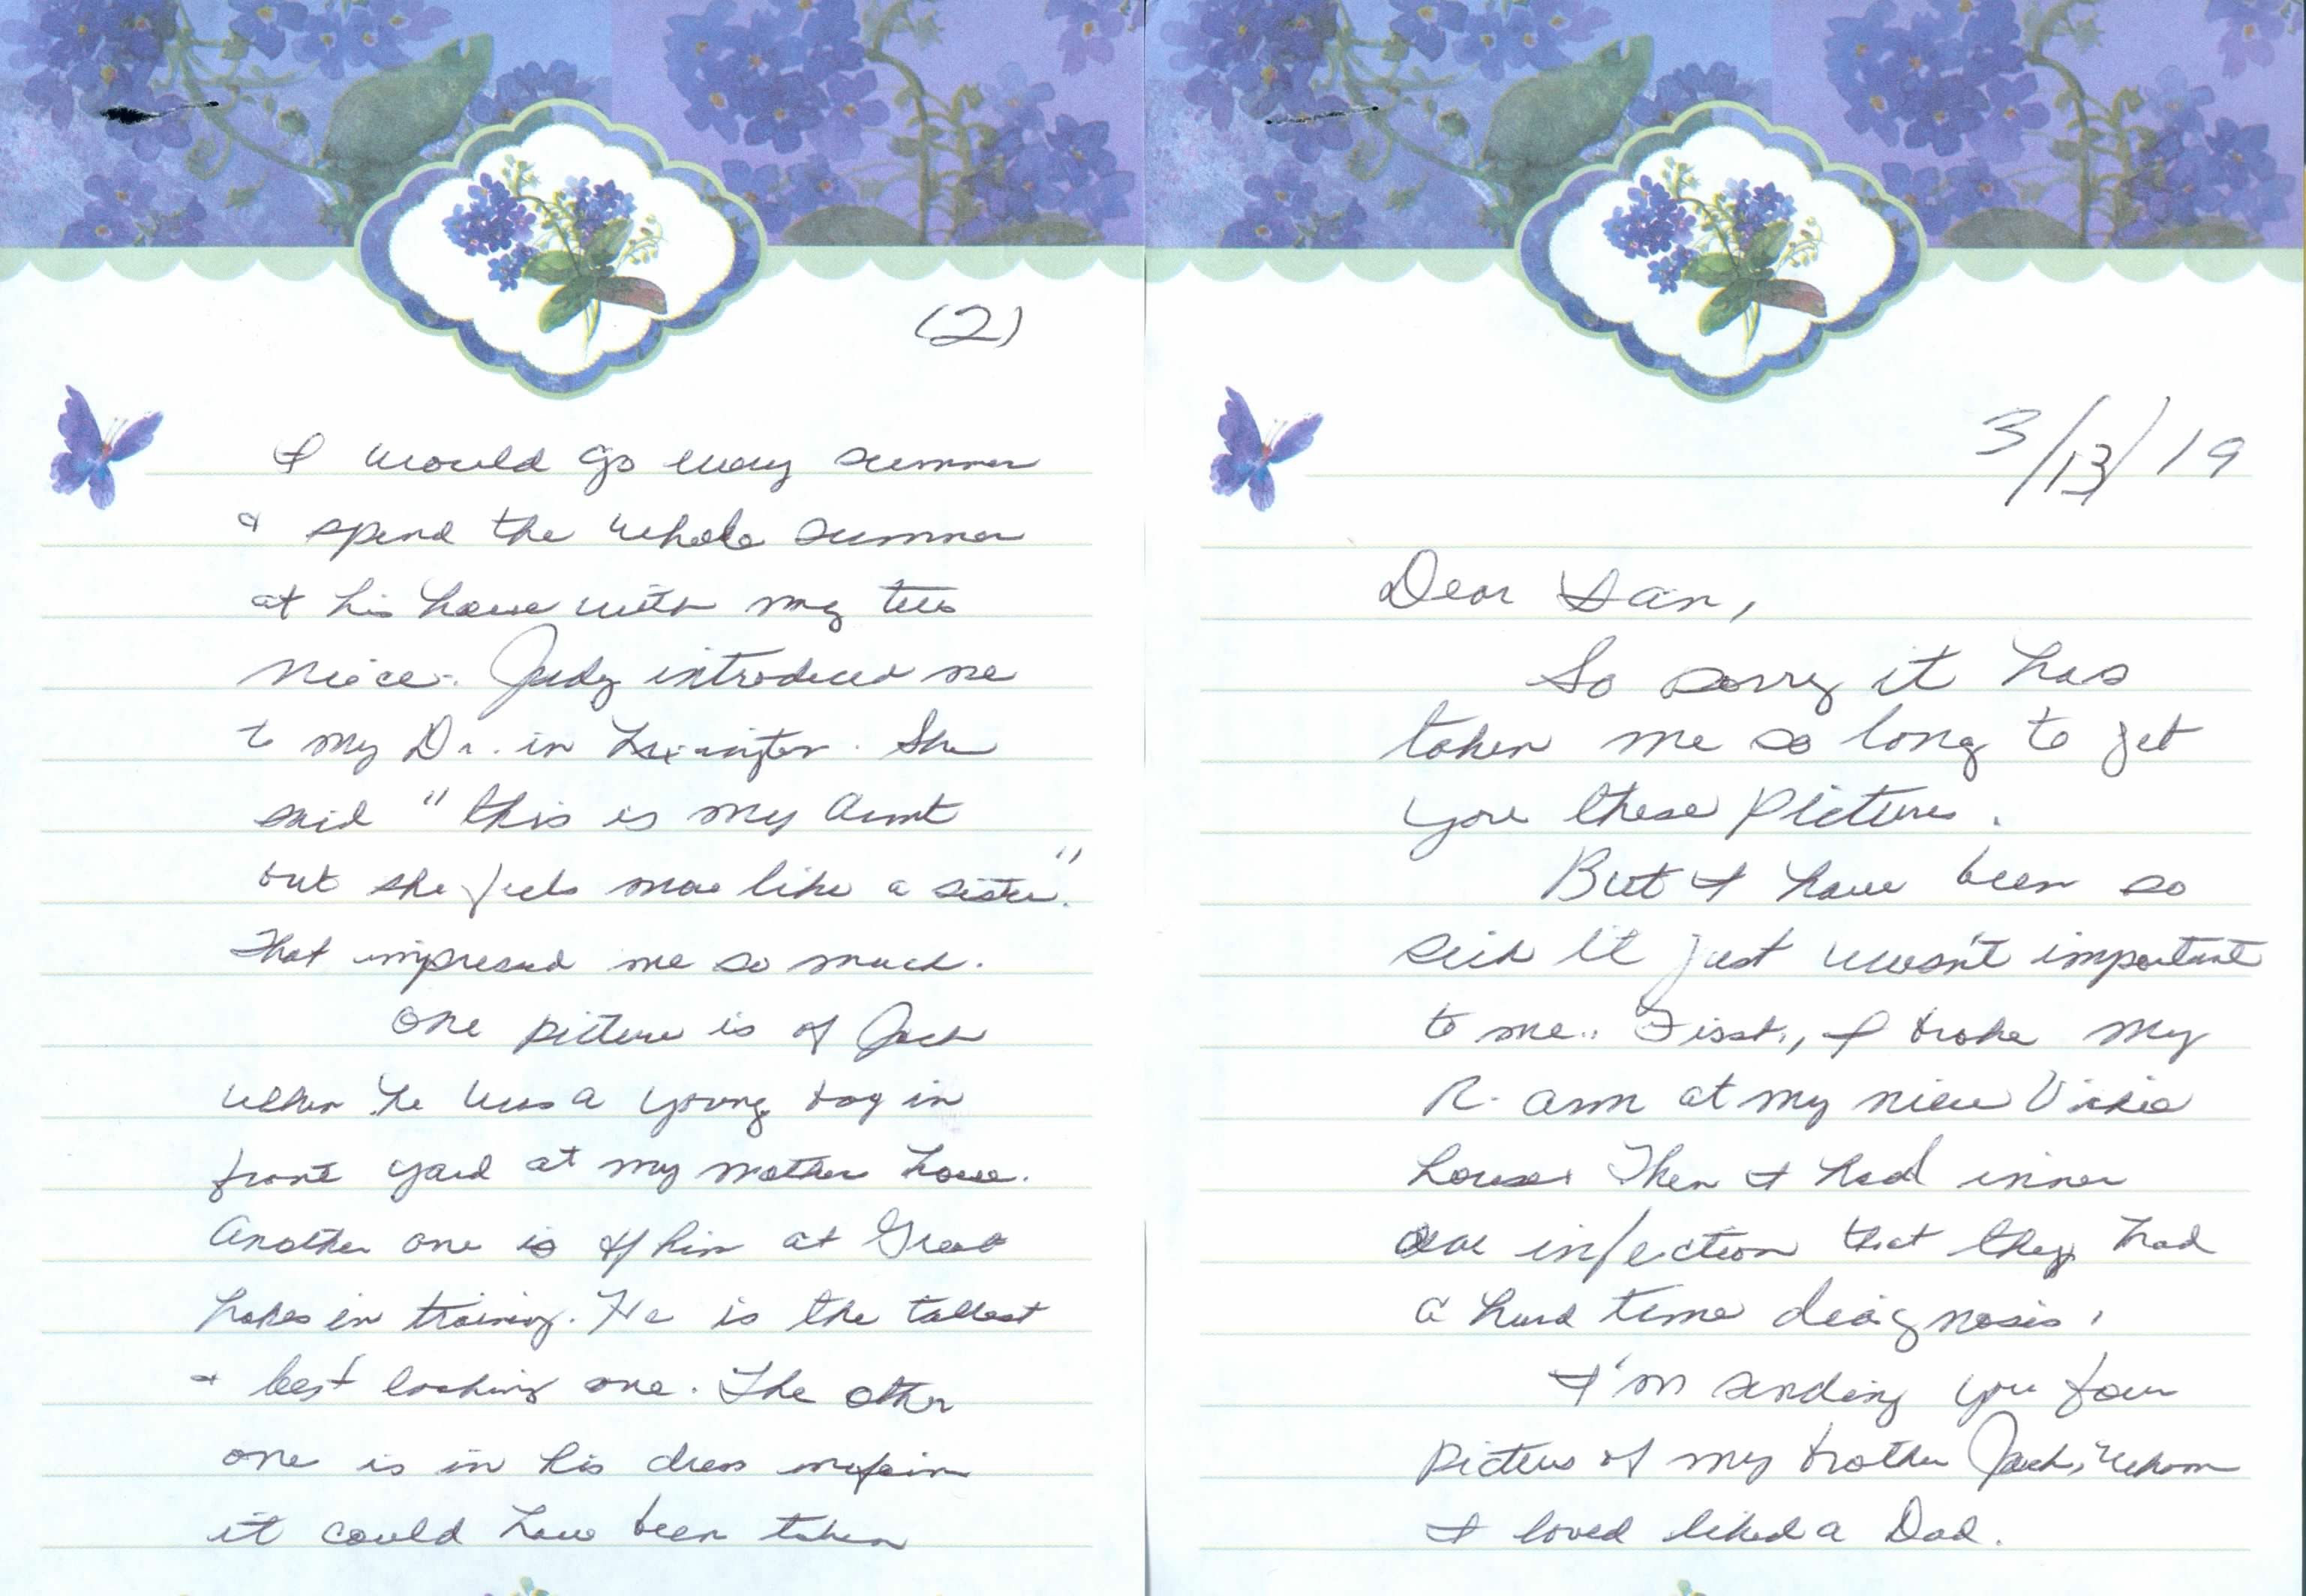 3/13/19
Dear
So sorry it has
taken me so long to get
you these Pictures.
But I have been so
sick it just wasn't important
to me. First, I broke my
R. arm at my niece Vickie
house. Then I had inner
ear infection that they had
a hard time diagnosis.
I'm sending you four
pictures of my brother Jack, whom
I loved liked a Dad.
(2)
I would go every summer
& spend the whole summer
at his house with my two
neices. Judy introduced me
to my Dr. in Lexington. She
said "this is my aunt
but she feels more like a sister".
That impressed me so much.
One picture is of Jack
when he was a young boy in
front yard at my mother house.
Another one is of him at Great
Lakes in training. He is the tallest
& best looking one. The other
one is in his dress uniform
it could have been taken